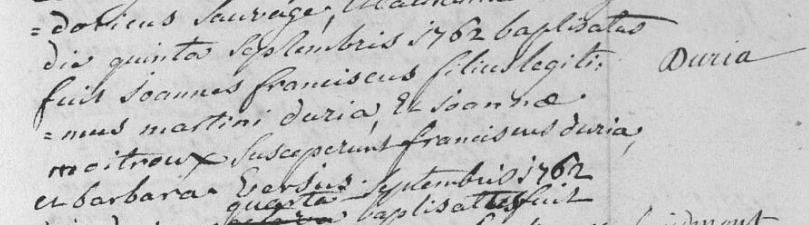 = doricus sauvage,
die quinta septembris 1762 baptisatus
fuit joannes franciscus filius legiti:
= mus martini duria, Et joannæ
moitroux susceperunt franciscus duria,
et barbara Gersius.
quarta septembris 1762
baptisattus fuit
Duria